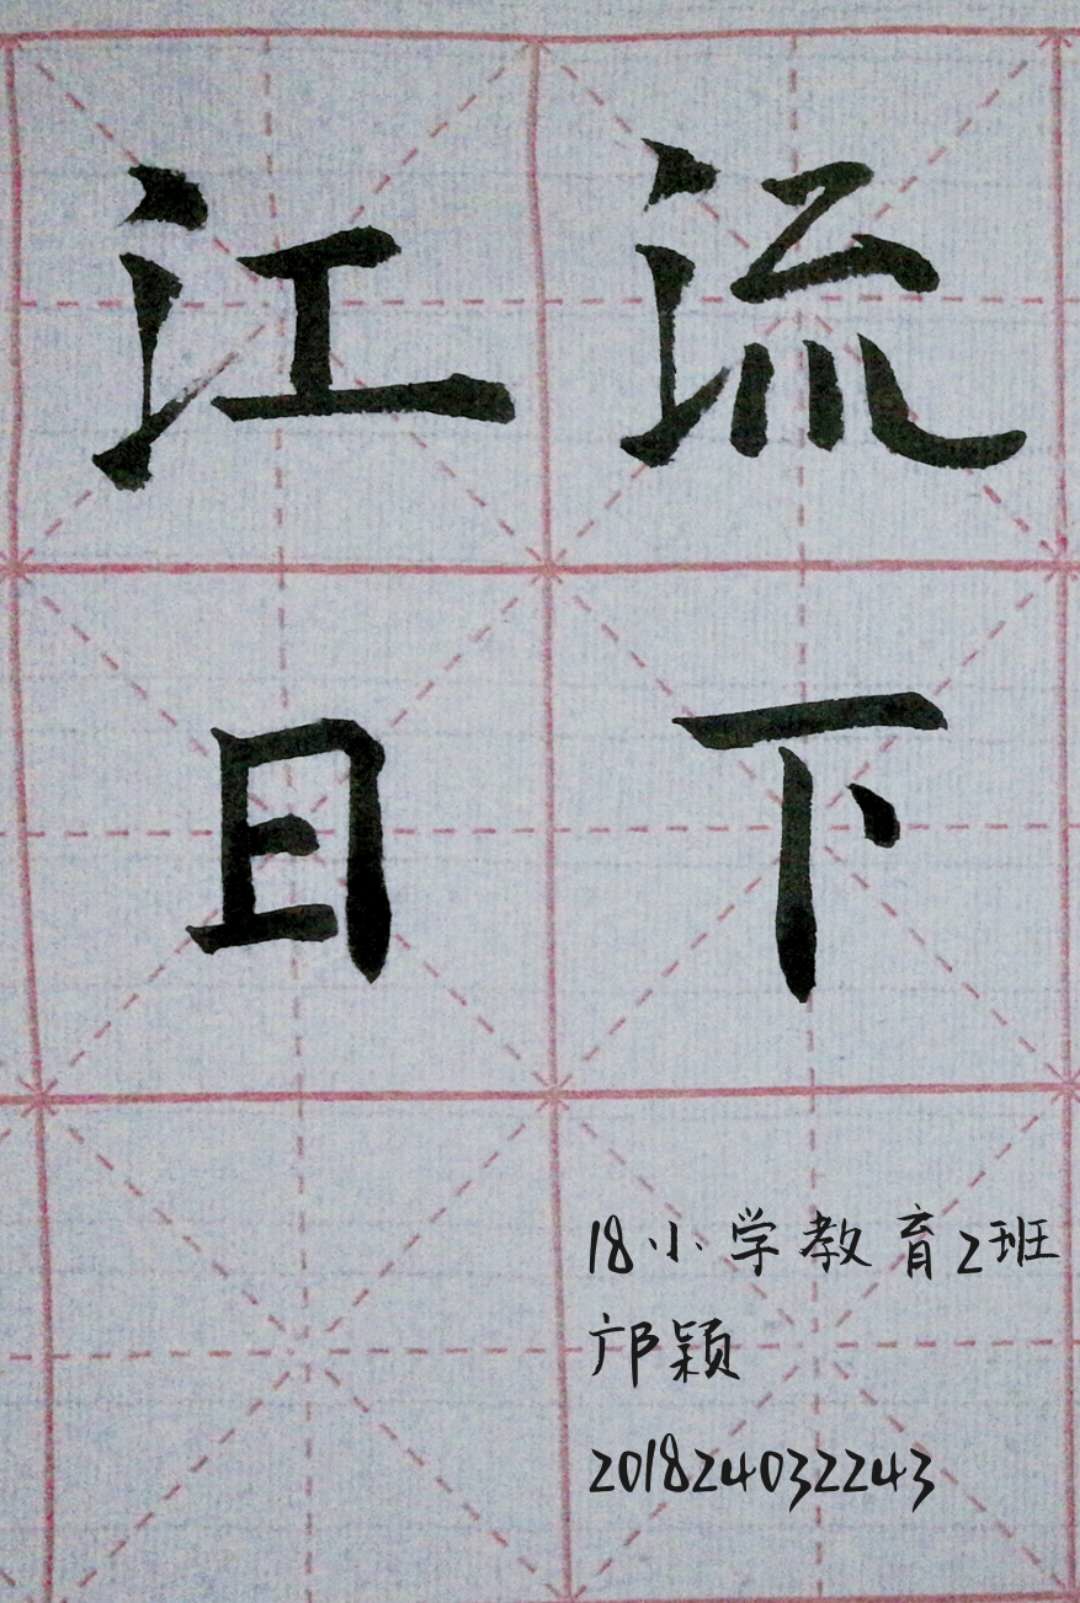 江流
日下
18小学教育2班
邝颖
201824032243